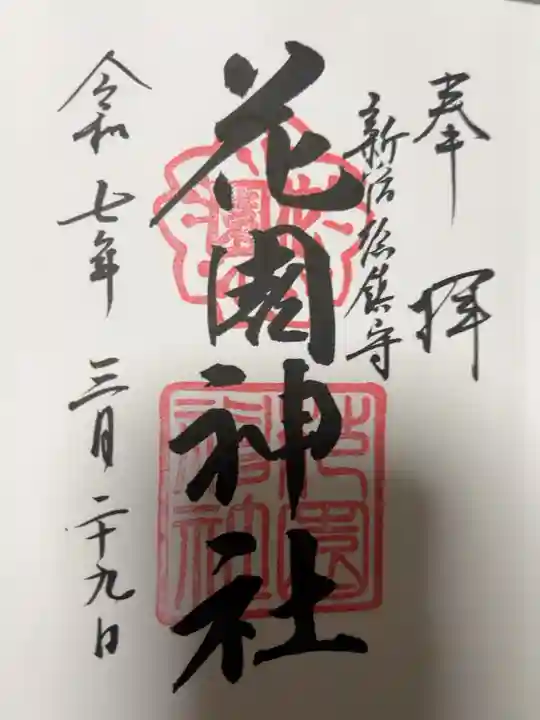 奉拝
新宿総鎮守
花園神社
花園神社
令和七年三月二十九日